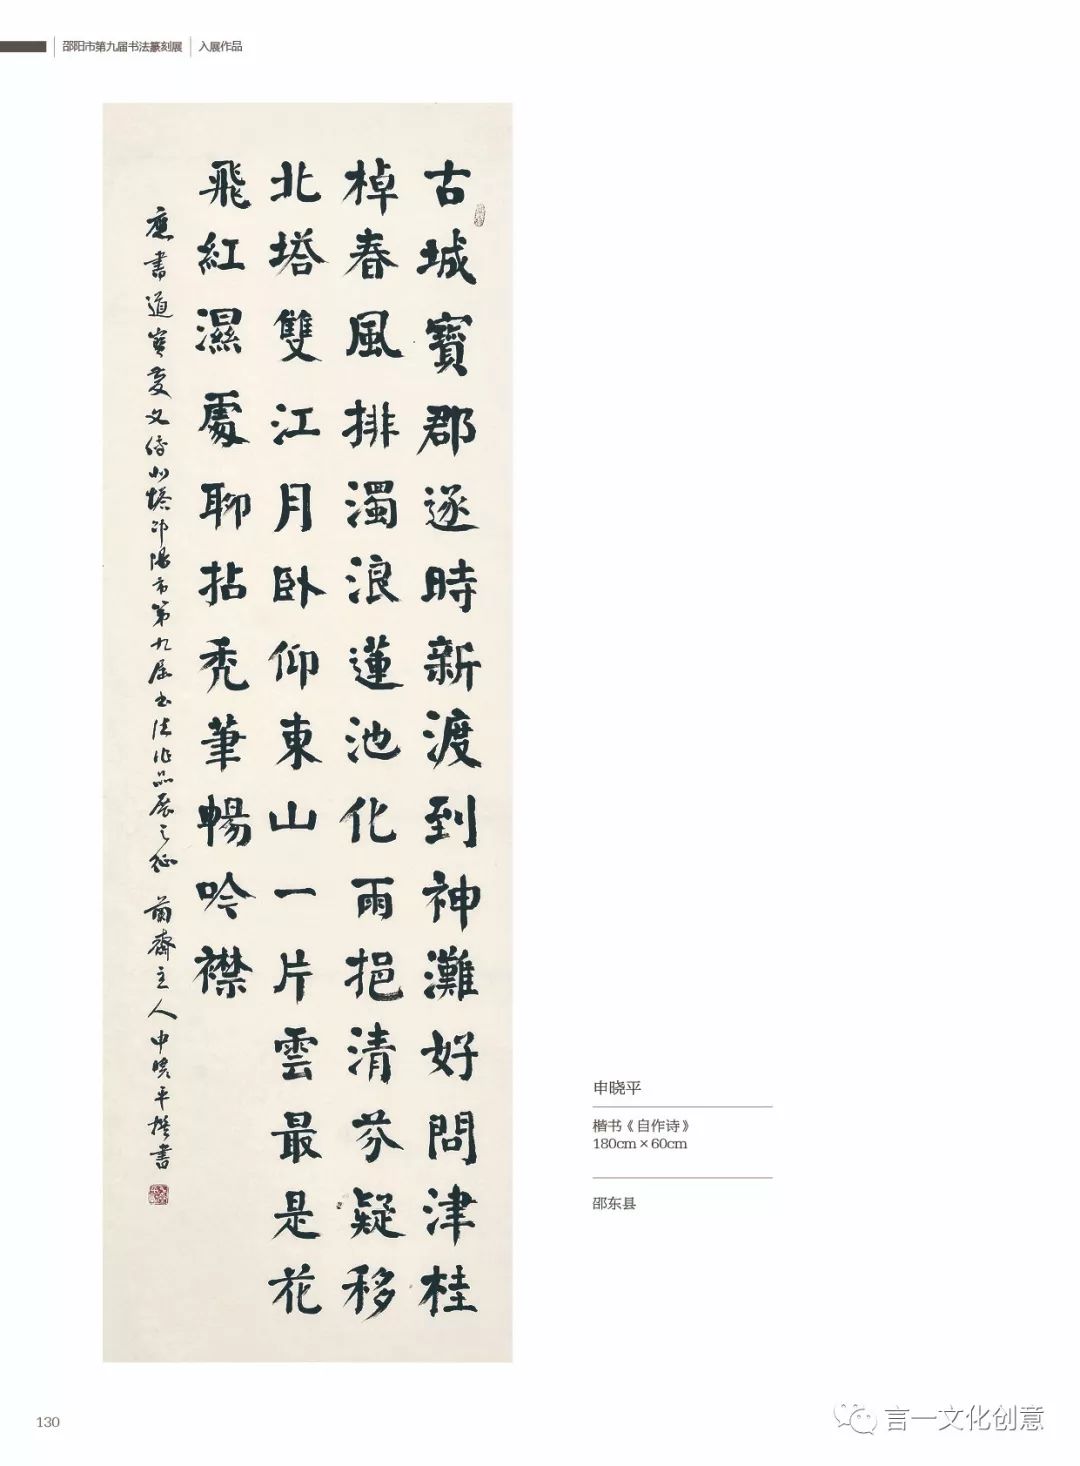 邵阳市第九届书法篆刻展 入展作品
古城寶郡逐時新渡到神灘好問津桂
棹春風排濁浪蓮池化雨挹清芬疑移
北塔雙江月卧仰東山一片雲最是花
飛紅濕處聊拈禿筆暢吟襟
應書道寶慶文北塔邵陽市第九屆书法作品展之征 齋主人申曉平撰書
申晓平
楷书《自作诗》
180cm×60cm
邵东县
130
言一文化创意